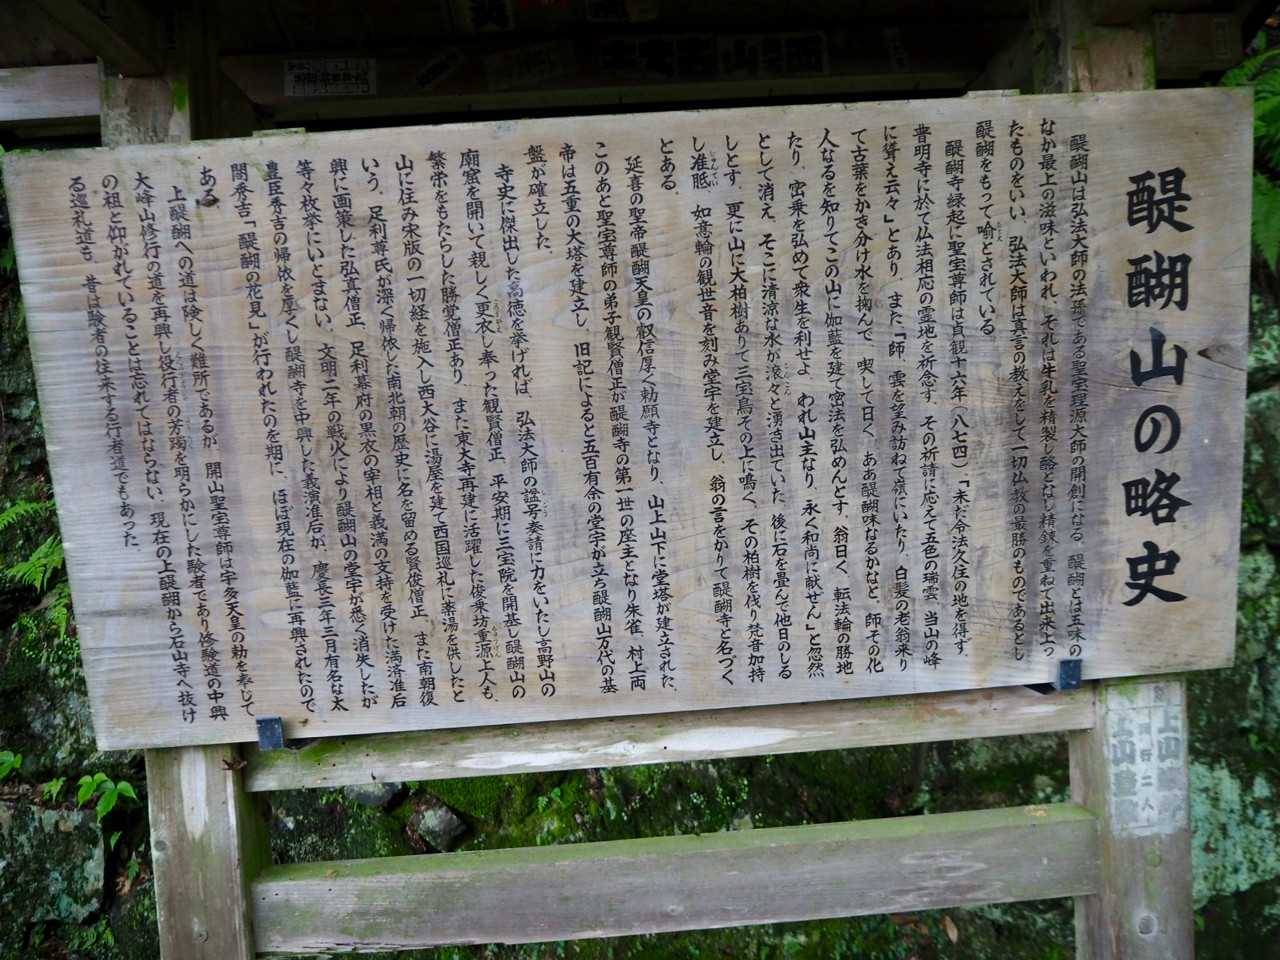 醍醐山の略史
醍醐山は弘法大師の法孫である聖宝理源大師の開創になる。醍醐とは五味の
なか最上の滋味といわれ、それは牛乳を精製し酪となし精錬を重ねて出来上っ
たものをいい、弘法大師は真言の教えをして一切仏教の最勝のものであるとし
醍醐をもって喩とされている。
醍醐寺縁起に聖宝尊師は貞観十六年(八七四)「未だ令法久住の地を得ず、
普明寺に於て仏法相応の霊地を祈念す、その祈請に応えて五色の瑞雲、当山の峰
に聳え云々」とあり、また「師、雲を望み訪ねて嶺にいたり、白髪の老翁来り
て古葉をかき分け水を掬んで、喫して曰く、ああ醍醐味なるかなと、師その化
人なるを知りてこの山に伽藍を建て密法を弘めんとす、翁曰く、転法輪の勝地
たり、密乗を弘めて衆生を利せよ、われ山主なり、永く和尚に献せん」と忽然
として消え、そこに清涼な水が滾々と湧き出ていた、後に石を畳んで他日のしる
しとす、更に山に大柏樹ありて三宝鳥その上に鳴く、その柏樹を伐り梵音加持
し准胝、如意輪の観世音を刻み堂宇を建立し、翁の言をかりて醍醐寺と名づく
とある。
延喜の聖帝醍醐天皇の叡信厚く勅願寺となり、山上山下に堂塔が建立された、
このあと聖宝尊師の弟子観賢僧正が醍醐寺の第一世の座主となり朱雀、村上両
帝は五重の大塔を建立し、旧記によると五百有余の堂宇が立ち醍醐山万代の基
盤が確立した。
寺史に傑出した高徳を挙げれば、弘法大師の諡号奏請に力をいたし高野山の
廟窟を開いて親しく更衣し奉った観賢僧正、平安期に三宝院を開基し醍醐山の
繁栄をもたらした勝覚僧正あり、また東大寺再建に活躍した俊乗坊重源上人も、
山に住み宋版の一切経を施入し西大谷に湯屋を建て西国巡礼に薬湯を供したと
いう、足利尊氏が深く帰依した南北朝の歴史に名を留める賢俊僧正、また南朝復
興に画策した弘真僧正、足利幕府の黒衣の宰相と義満の支持を受けた満済准后
等々枚挙にいとまない、文明二年の戦火により醍醐山の堂宇が悉く消失したが
豊臣秀吉の帰依を厚くし醍醐寺を中興した義演准后が、慶長三年三月有名な太
閤秀吉「醍醐の花見」が行われたのを期に、ほぼ現在の伽藍に再興されたので
ある。
上醍醐への道は険しく難所であるが、開山聖宝尊師は宇多天皇の勅を奉じて
大峰山修行の道を再興し役行者の芳躅を明らかにした験者であり修験道の中興
の祖と仰がれていることは忘れてはならない、現在の上醍醐から石山寺へ抜け
る巡礼道も、昔は験者の往来する行者道でもあった。